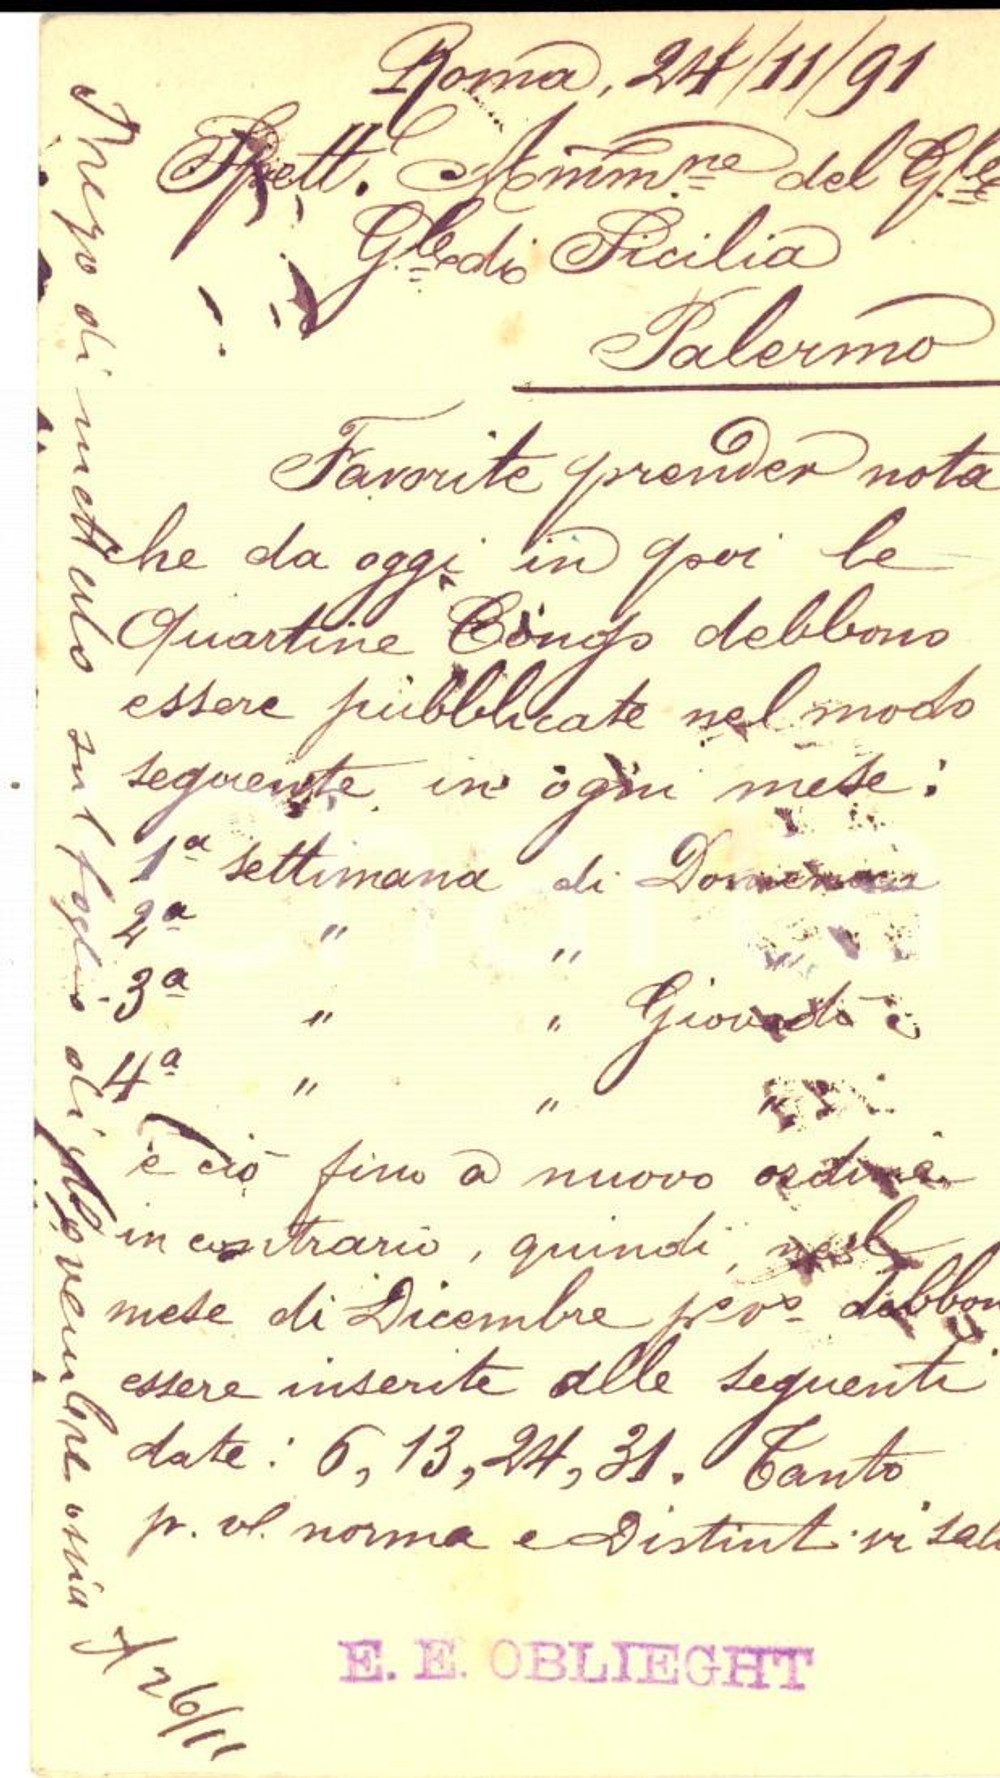 Roma, 24/11/91
Spett. Amm.ne del G.le
G.le di Sicilia
Palermo
Favorite prender nota
che da oggi in poi le
Quartine Congo debbono
essere pubblicate nel modo
seguente in ogni mese:
1a settimana di Domenica
2a " "
3a " " Giovedì
4a " " "
e ciò fino a nuovo ordine
in contrario, quindi, nel
mese di Dicembre pvo debbon
essere inserite alle seguenti
date: 6, 13, 24, 31. Tanto
p. vs. norma e Distint. vi salu
E. E. OBLIEGHT
Prego di metterlo sul foglio di 9bre
26/11